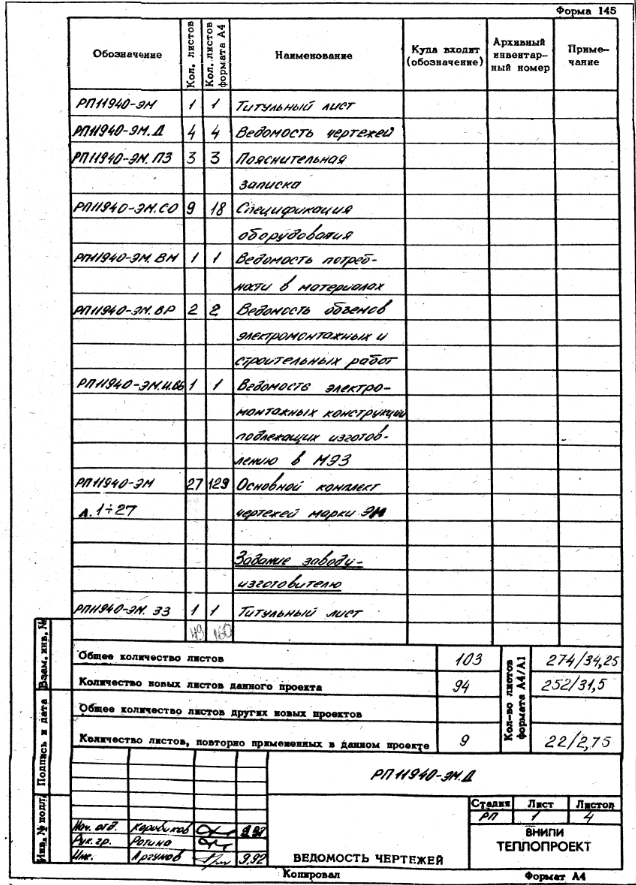 Форма 145
Обозначение Кол. листов Кол. листов формата А4 Наименование Куда входит (обозначение) Архивный инвентарный номер Примечание
РП11940-ЭМ 1 1 Титульный лист
РП11940-ЭМ.Д 4 4 Ведомость чертежей
РП11940-ЭМ.ПЗ 3 3 Пояснительная
записка
РП11940-ЭМ.СО 9 18 Спецификация
оборудования
РП11940-ЭМ.ВМ 1 1 Ведомость потреб-
ности в материалах
РП11940-ЭМ.ВР 2 2 Ведомость объемов
электромонтажных и
строительных работ
РП11940-ЭМ. 1 1 Ведомость электро-
монтажных конструкций
подлежащих изготов-
лению в МЭЗ
РП11940-ЭМ 27 129 Основной комплект
л. 1÷27 чертежей марки ЭМ
Задание заводу-
изготовителю
РП11940-ЭМ. ЭЗ 1 1 Титульный лист
49 160
Общее количество листов 103 274/34,25
Количество новых листов данного проекта 94 252/31,5
Общее количество листов других новых проектов
Количество листов, повторно примененных в данном проекте 9 22/2,75
Кол-во листов формата А4/А1
Взам. инв. №
Подпись и дата
Инв. № подл.
РП11940-ЭМ.Д
Стадия Лист Листов
РП 1 4
Нач. отд. 9.92
Рук. гр.
Инж. 9.92
ВЕДОМОСТЬ ЧЕРТЕЖЕЙ
ВНИПИ
ТЕПЛОПРОЕКТ
Копировал Формат А4